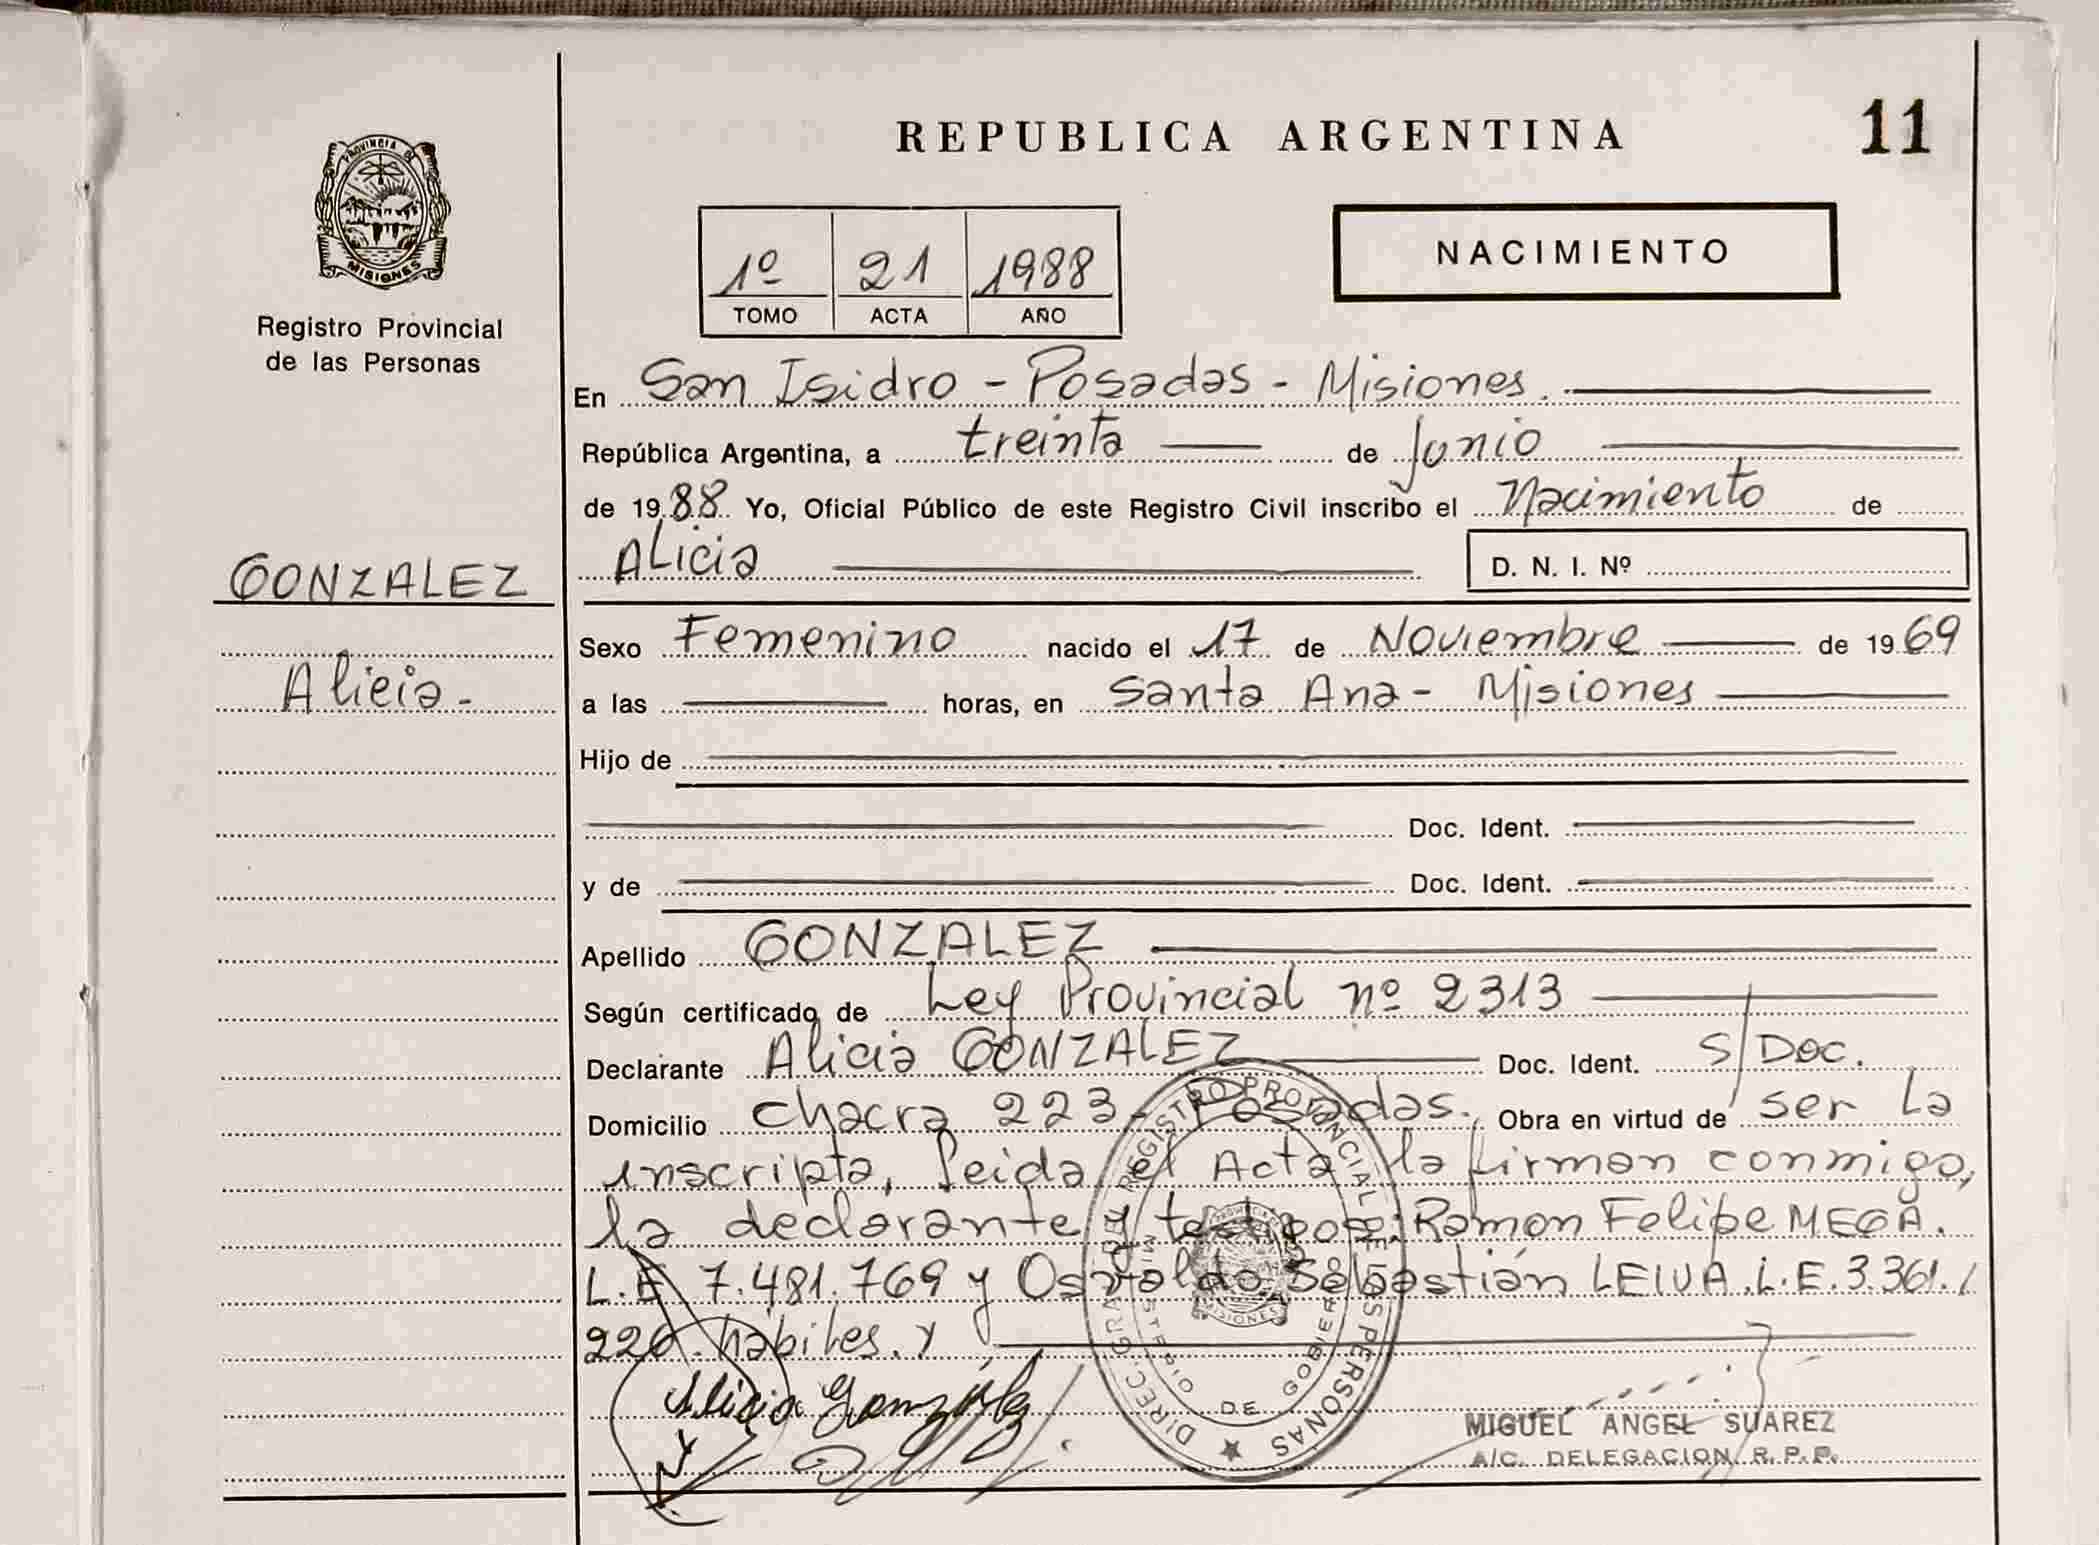 REPUBLICA ARGENTINA
11
PROVINCIA DE
MISIONES
Registro Provincial
de las Personas
1º 21 1988
TOMO ACTA AÑO
NACIMIENTO
En San Isidro - Posadas - Misiones.
República Argentina, a treinta de Junio
de 1988 Yo, Oficial Público de este Registro Civil inscribo el Nacimiento de
Alicia D. N. I. Nº
GONZALEZ
Alicia -
Sexo Femenino nacido el 17 de Noviembre de 1969
a las horas, en Santa Ana - Misiones
Hijo de
Doc. Ident.
y de Doc. Ident.
Apellido GONZALEZ
Según certificado de Ley Provincial nº 2313
Declarante Alicia GONZALEZ Doc. Ident. S/Doc.
Domicilio chacra 223 - Posadas. Obra en virtud de ser La
inscripta, leida el Acta la firman conmigo,
la declarante y testigos: Ramon Felipe MEGA.
L.E 7.481.769 y Osvaldo Sebastián LEIVA. L.E. 3.361./
220. hábiles. y
Alicia González
DIREC. GRAL. DEL REGISTRO PROVINCIAL DE LAS PERSONAS
MINISTERIO DE GOBIERNO
MISIONES
MIGUEL ANGEL SUAREZ
A/C. DELEGACION R. P. P.